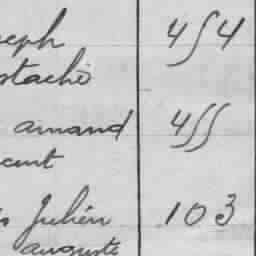 seph 454
stache
amand 455
cent
Julien 103
auguste